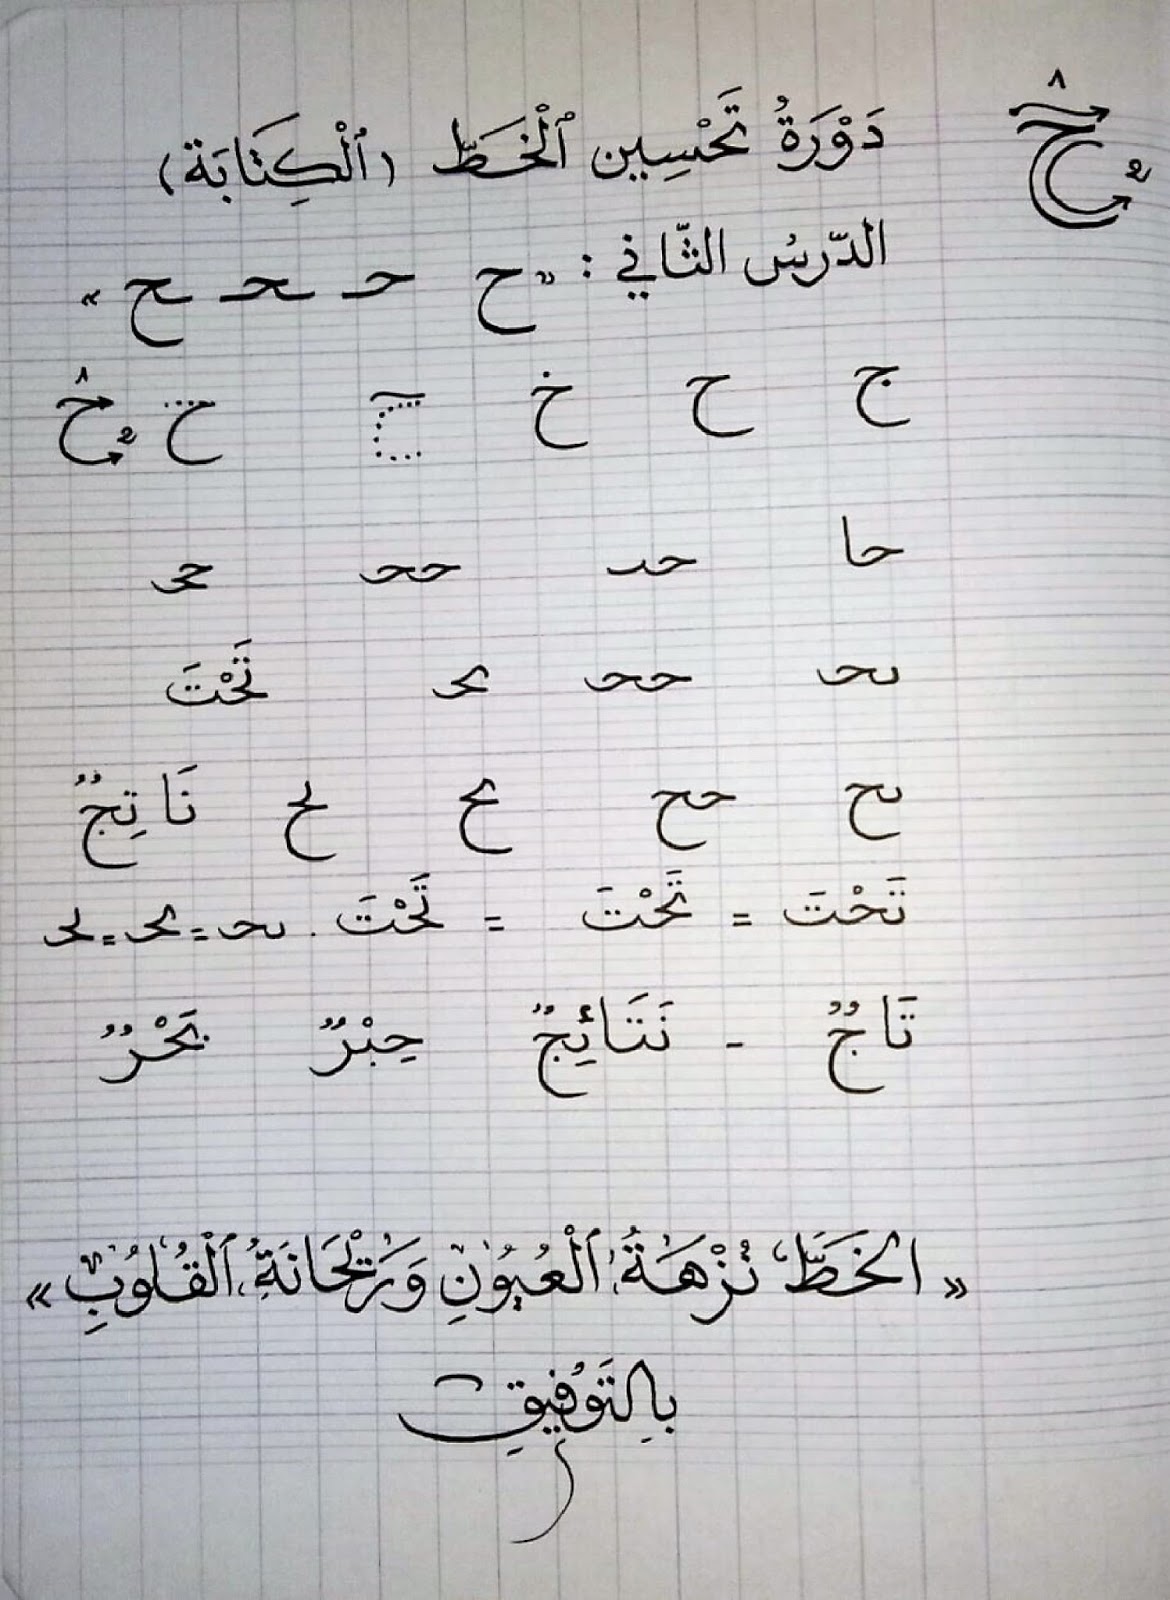 دَوْرَةُ تَحْسِين ٱلْخَطِّ (ٱلْكِتَابَة)
الدّرسُ الثّاني : « ح حـ ـحـ ـح »
ج ح خ ح ح ح 1 2
حا حد ححـ حمحـ
ىحـ ححـ ىحـ تَحْتَ
ىح حح ىح لح نَاتِجٌ
تَحْتَ = تَحْتَ = تَحْتَ . ىحـ = ىحـ = لحـ
تَاجٌ - نَتَائِجٌ حِبْرٌ بَحْرٌ
« الخَطُّ نُزْهَةُ ٱلْعُيُونِ وَرَيْحَانَةُ ٱلْقُلُوبِ »
بِالتَّوْفِيقِ